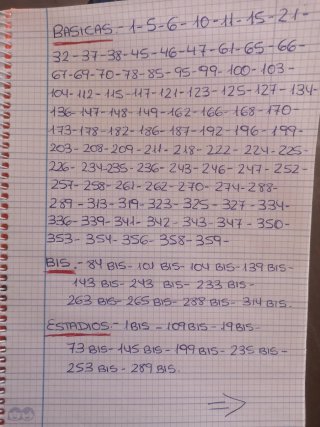 BASICAS.- 1-5-6-10-11-15-21-
32-37-38-45-46-47-61-65-66-
67-69-70-78-85-95-99-100-103-
104-112-115-117-121-123-125-127-134-
136-147-148-149-162-166-168-170-
173-178-182-186-187-192-196-199-
203-208-209-211-218-222-224-225-
226-234-235-236-243-246-247-252-
257-258-261-262-270-274-288-
289-313-319-323-325-327-334-
336-339-341-342-343-347-350-
353-354-356-358-359-
BIS.- 84 BIS-101 BIS-104 BIS-139 BIS-
143 BIS-243 BIS-233 BIS-
263 BIS-265 BIS-288 BIS-314 BIS.
ESTADIOS.- 1 BIS-109 BIS-19 BIS-
73 BIS-145 BIS-199 BIS-235 BIS-
253 BIS-289 BIS.